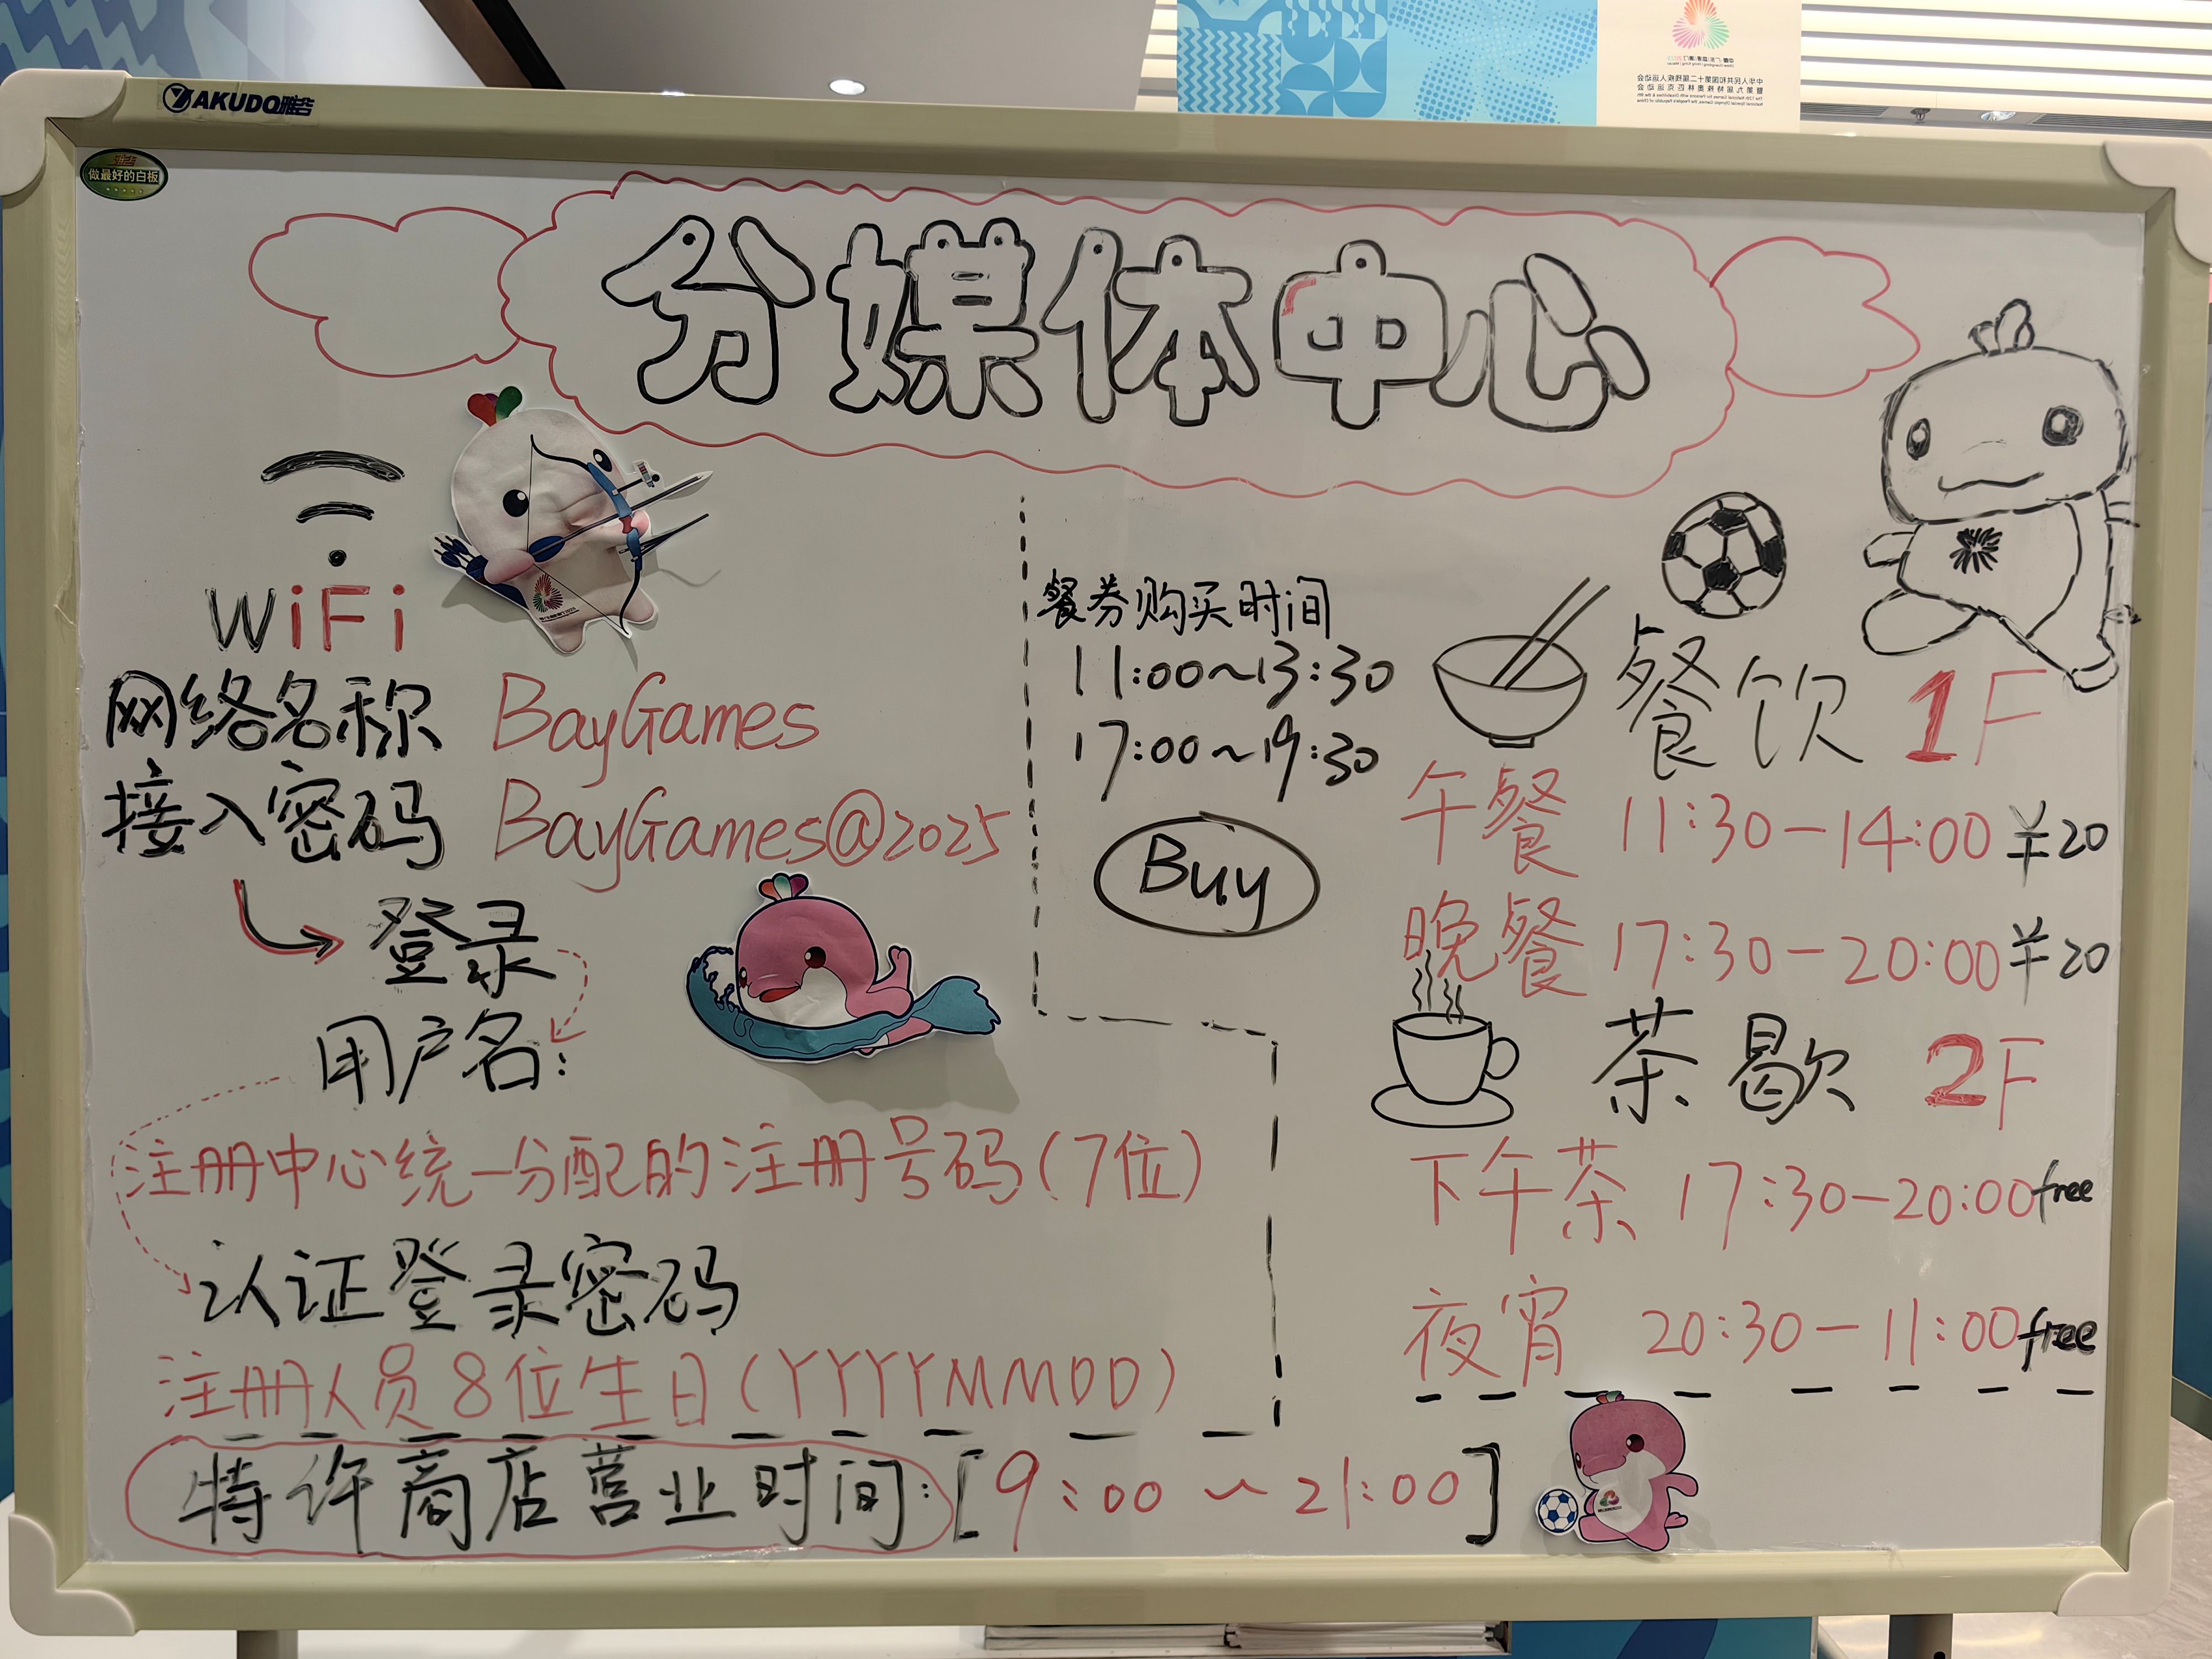 AKUDO雅告
做最好的白板
分媒体中心
WiFi
网络名称 BayGames
接入密码 BayGames@2025
登录
用户名:
注册中心统一分配的注册号码(7位)
认证登录密码
注册人员8位生日(YYYYMMDD)
餐券购买时间
11:00~13:30
17:00~19:30
Buy
餐饮 1F
午餐 11:30-14:00 ¥20
晚餐 17:30-20:00 ¥20
茶歇 2F
下午茶 17:30-20:00 free
夜宵 20:30-11:00 free
特许商店营业时间:[9:00~21:00]
中华人民共和国第十二届残疾人运动会
暨第九届特殊奥林匹克运动会